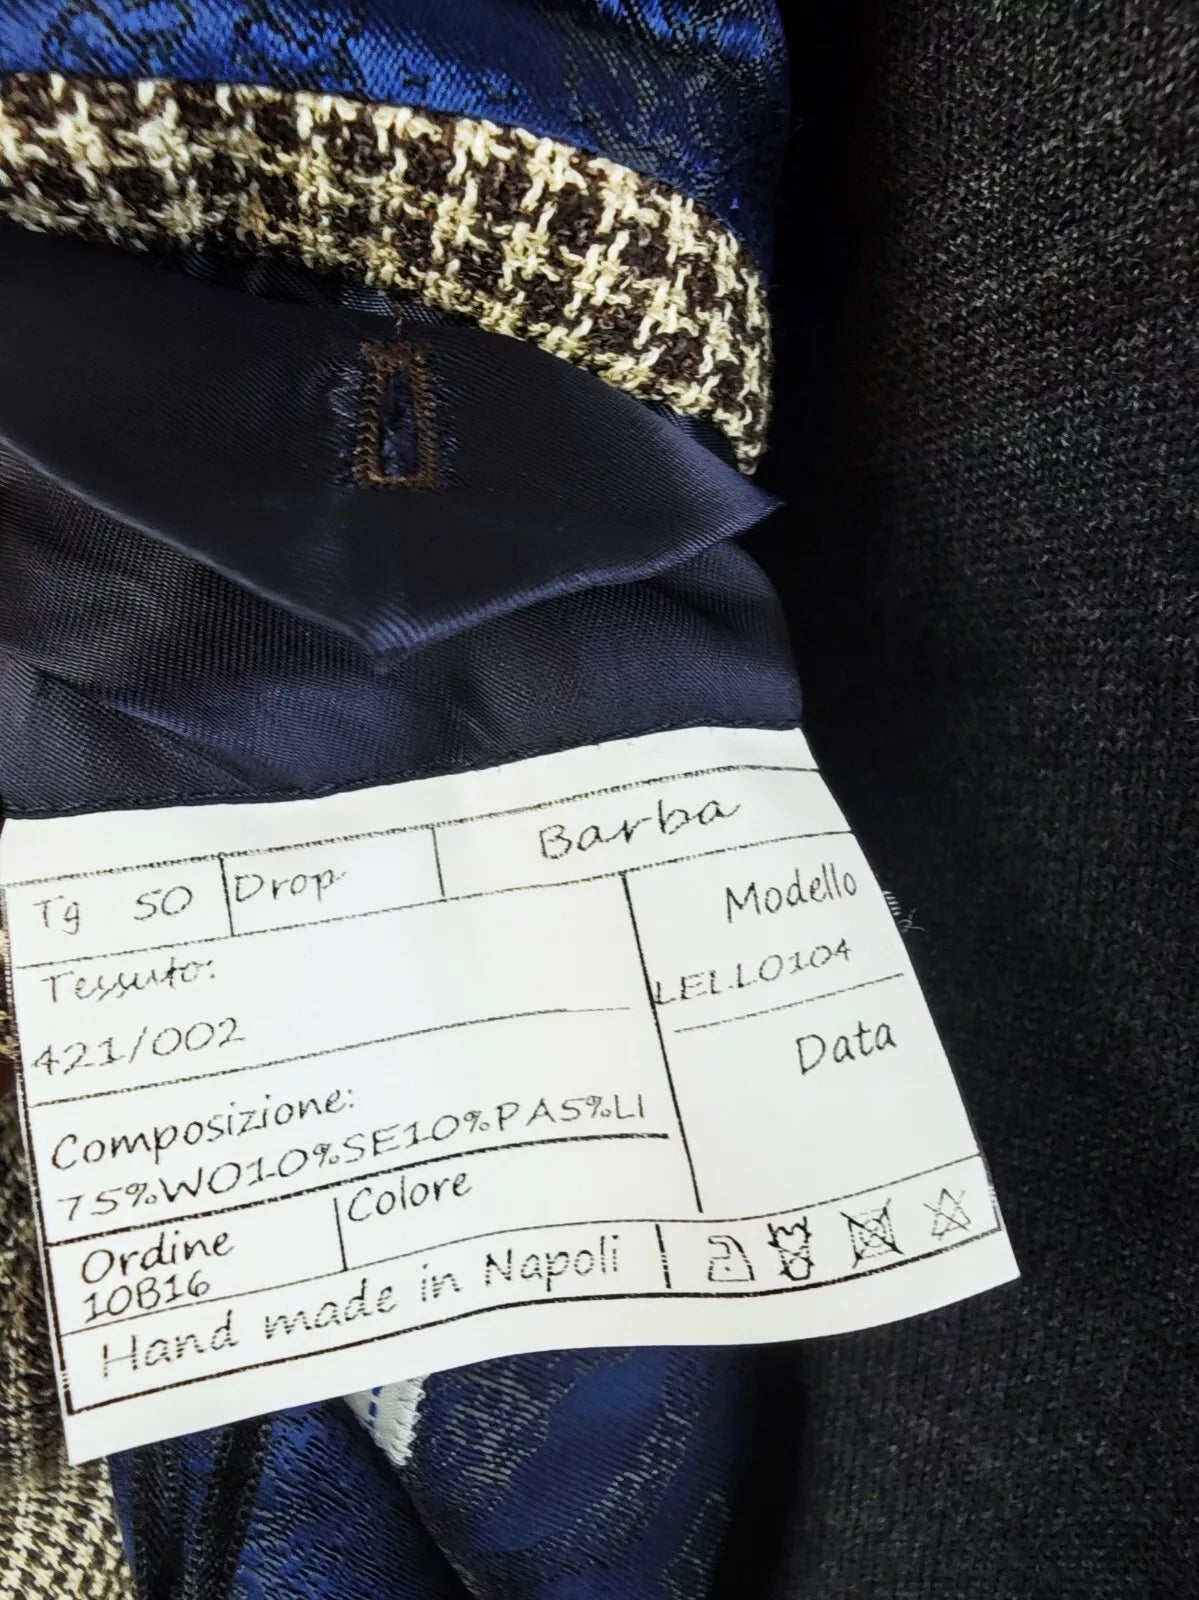 Tg 50 Drop Barba
Tessuto:
421/002
Modello
LELLO104
Data
Composizione:
75%WO10%SE10%PA5%LI
Ordine
10B16
Colore
Hand made in Napoli